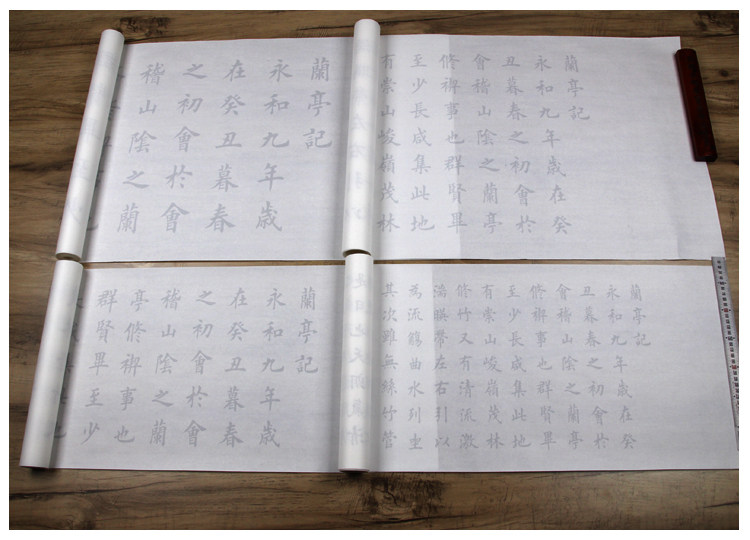 蘭亭記
永和九年歲
在癸丑暮春
之初會於會
稽山陰之蘭
蘭亭記
永和九年歲在癸
丑暮春之初會於
會稽山陰之蘭亭
脩禊事也群賢畢
至少長咸集此地
有崇山峻嶺茂林
蘭亭記
永和九年歲
在癸丑暮春
之初會於會
稽山陰之蘭
亭脩禊事也
群賢畢至少
蘭亭記
永和九年歲在癸
丑暮春之初會於
會稽山陰之蘭亭
脩禊事也群賢畢
至少長咸集此地
有崇山峻嶺茂林
脩竹又有清流激
湍暎帶左右引以
為流觴曲水列坐
其次雖無絲竹管